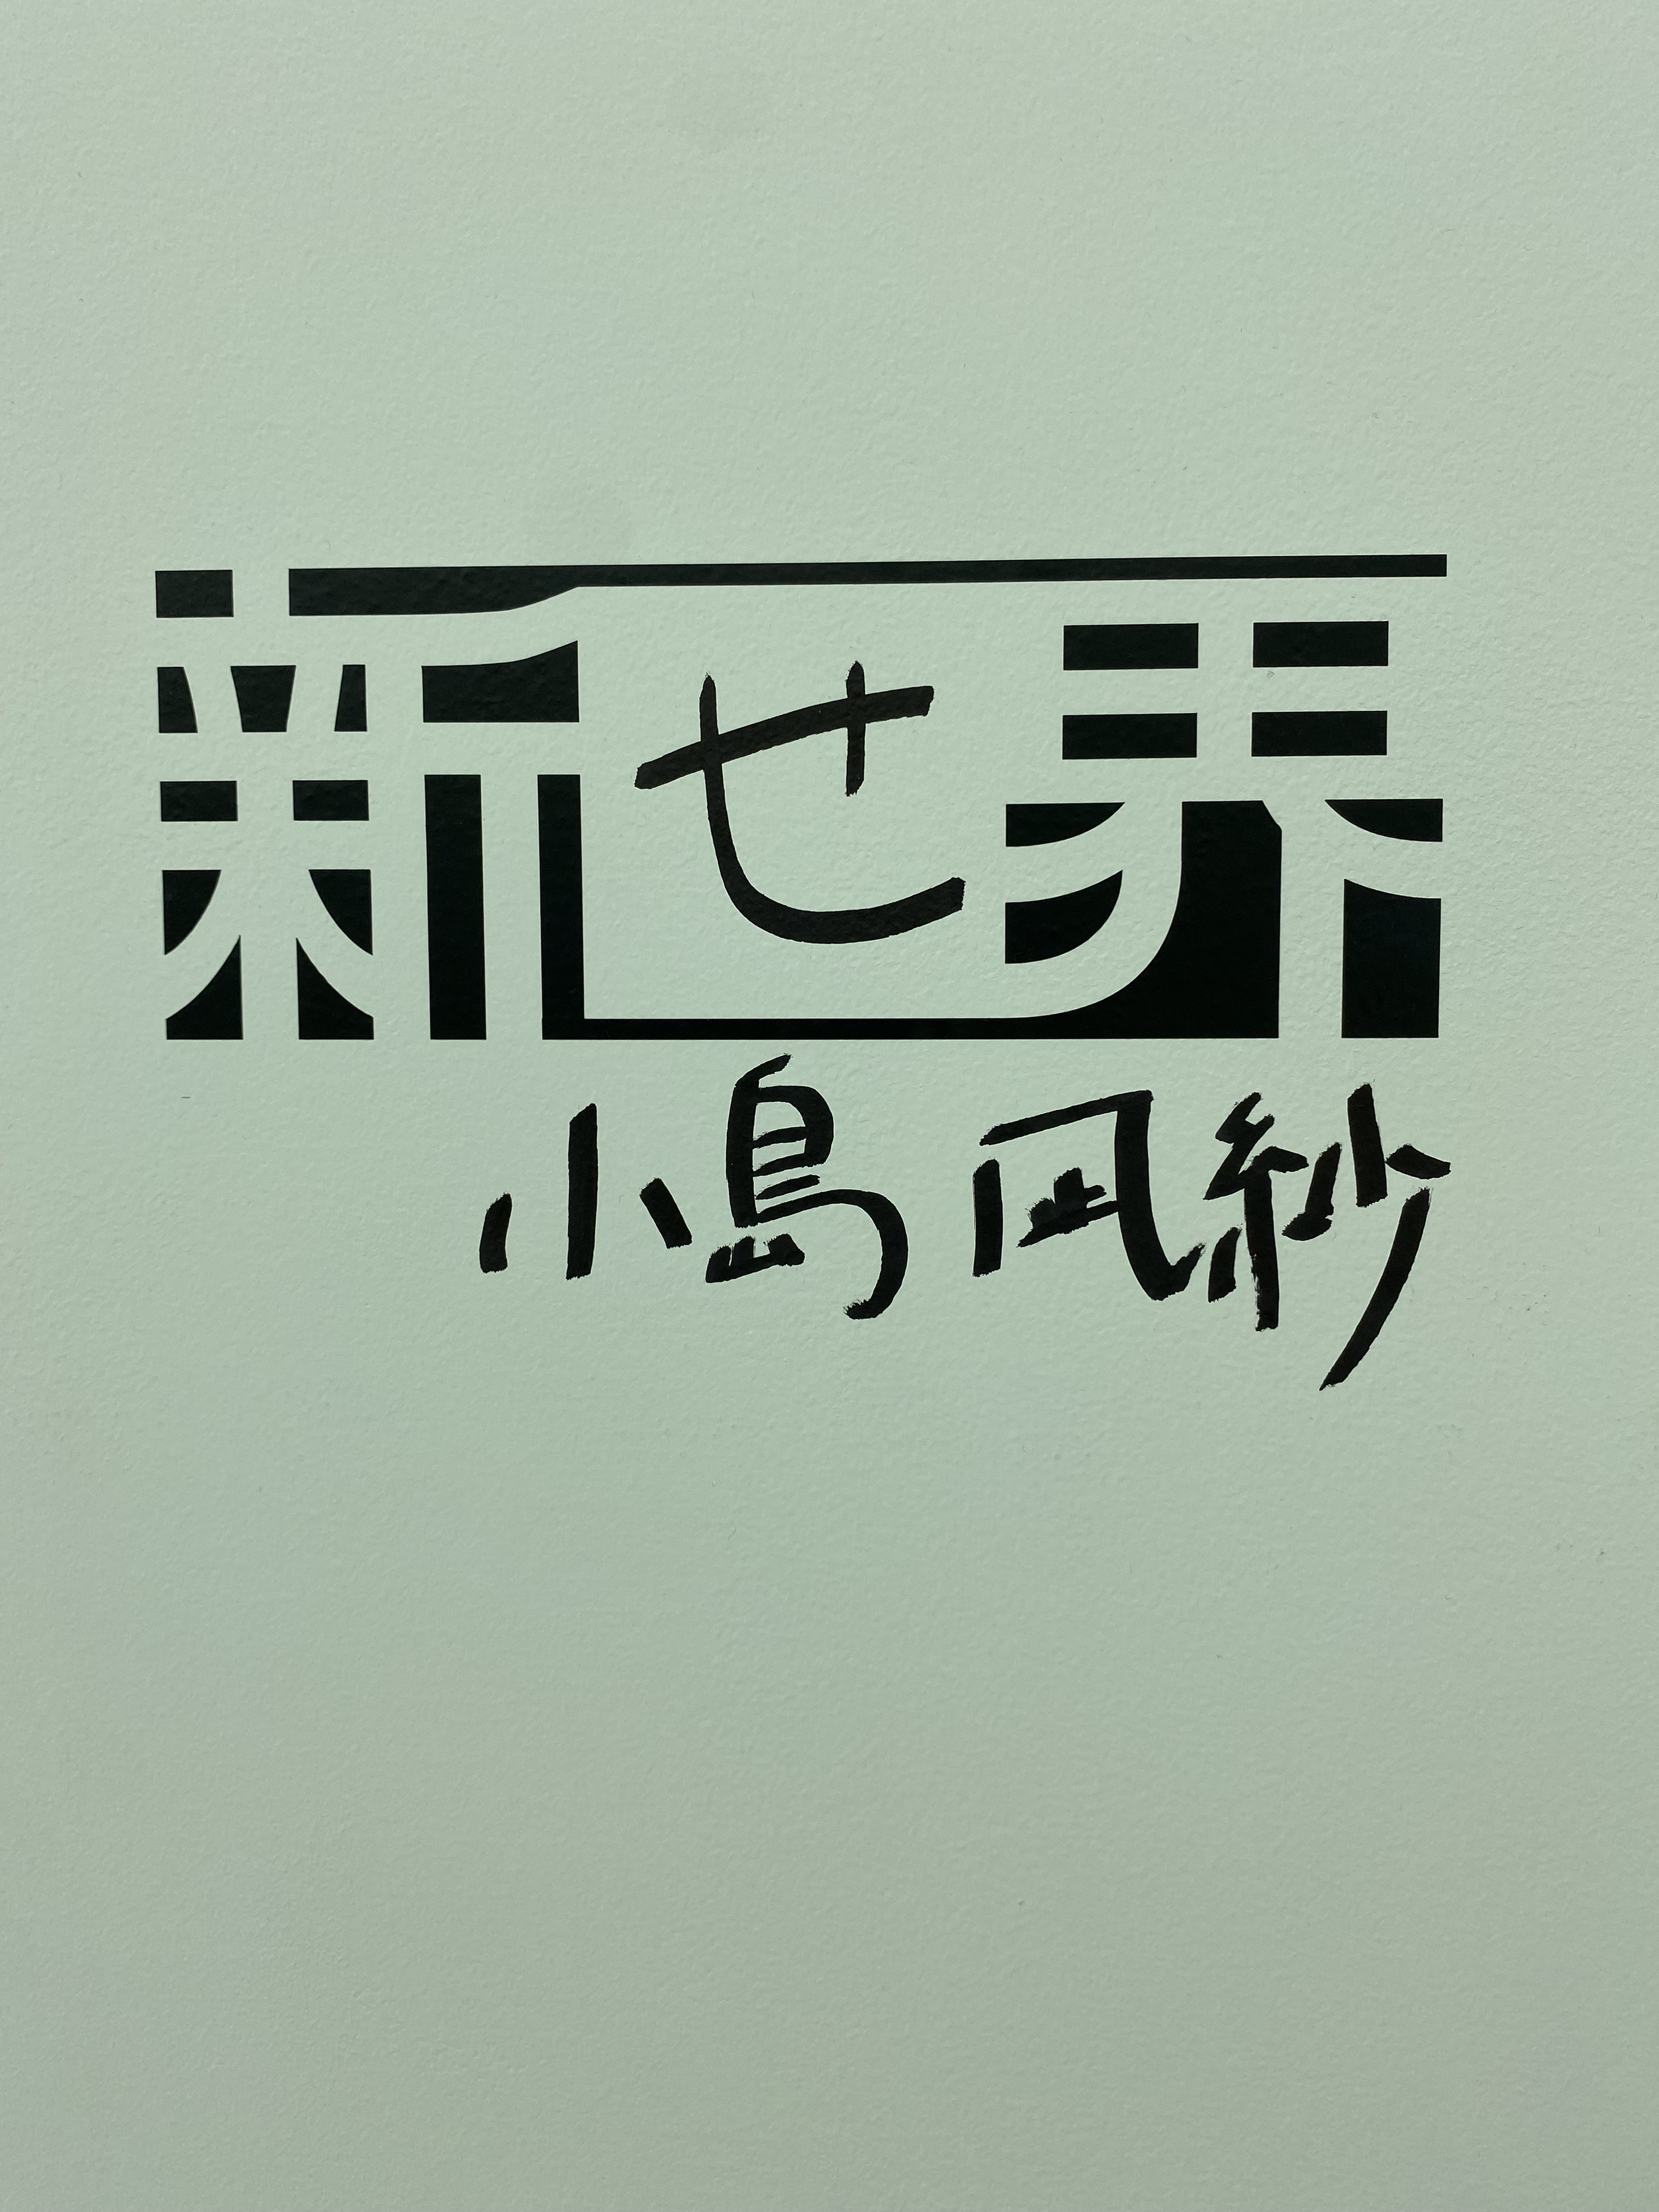 新せ界
小島凪紗